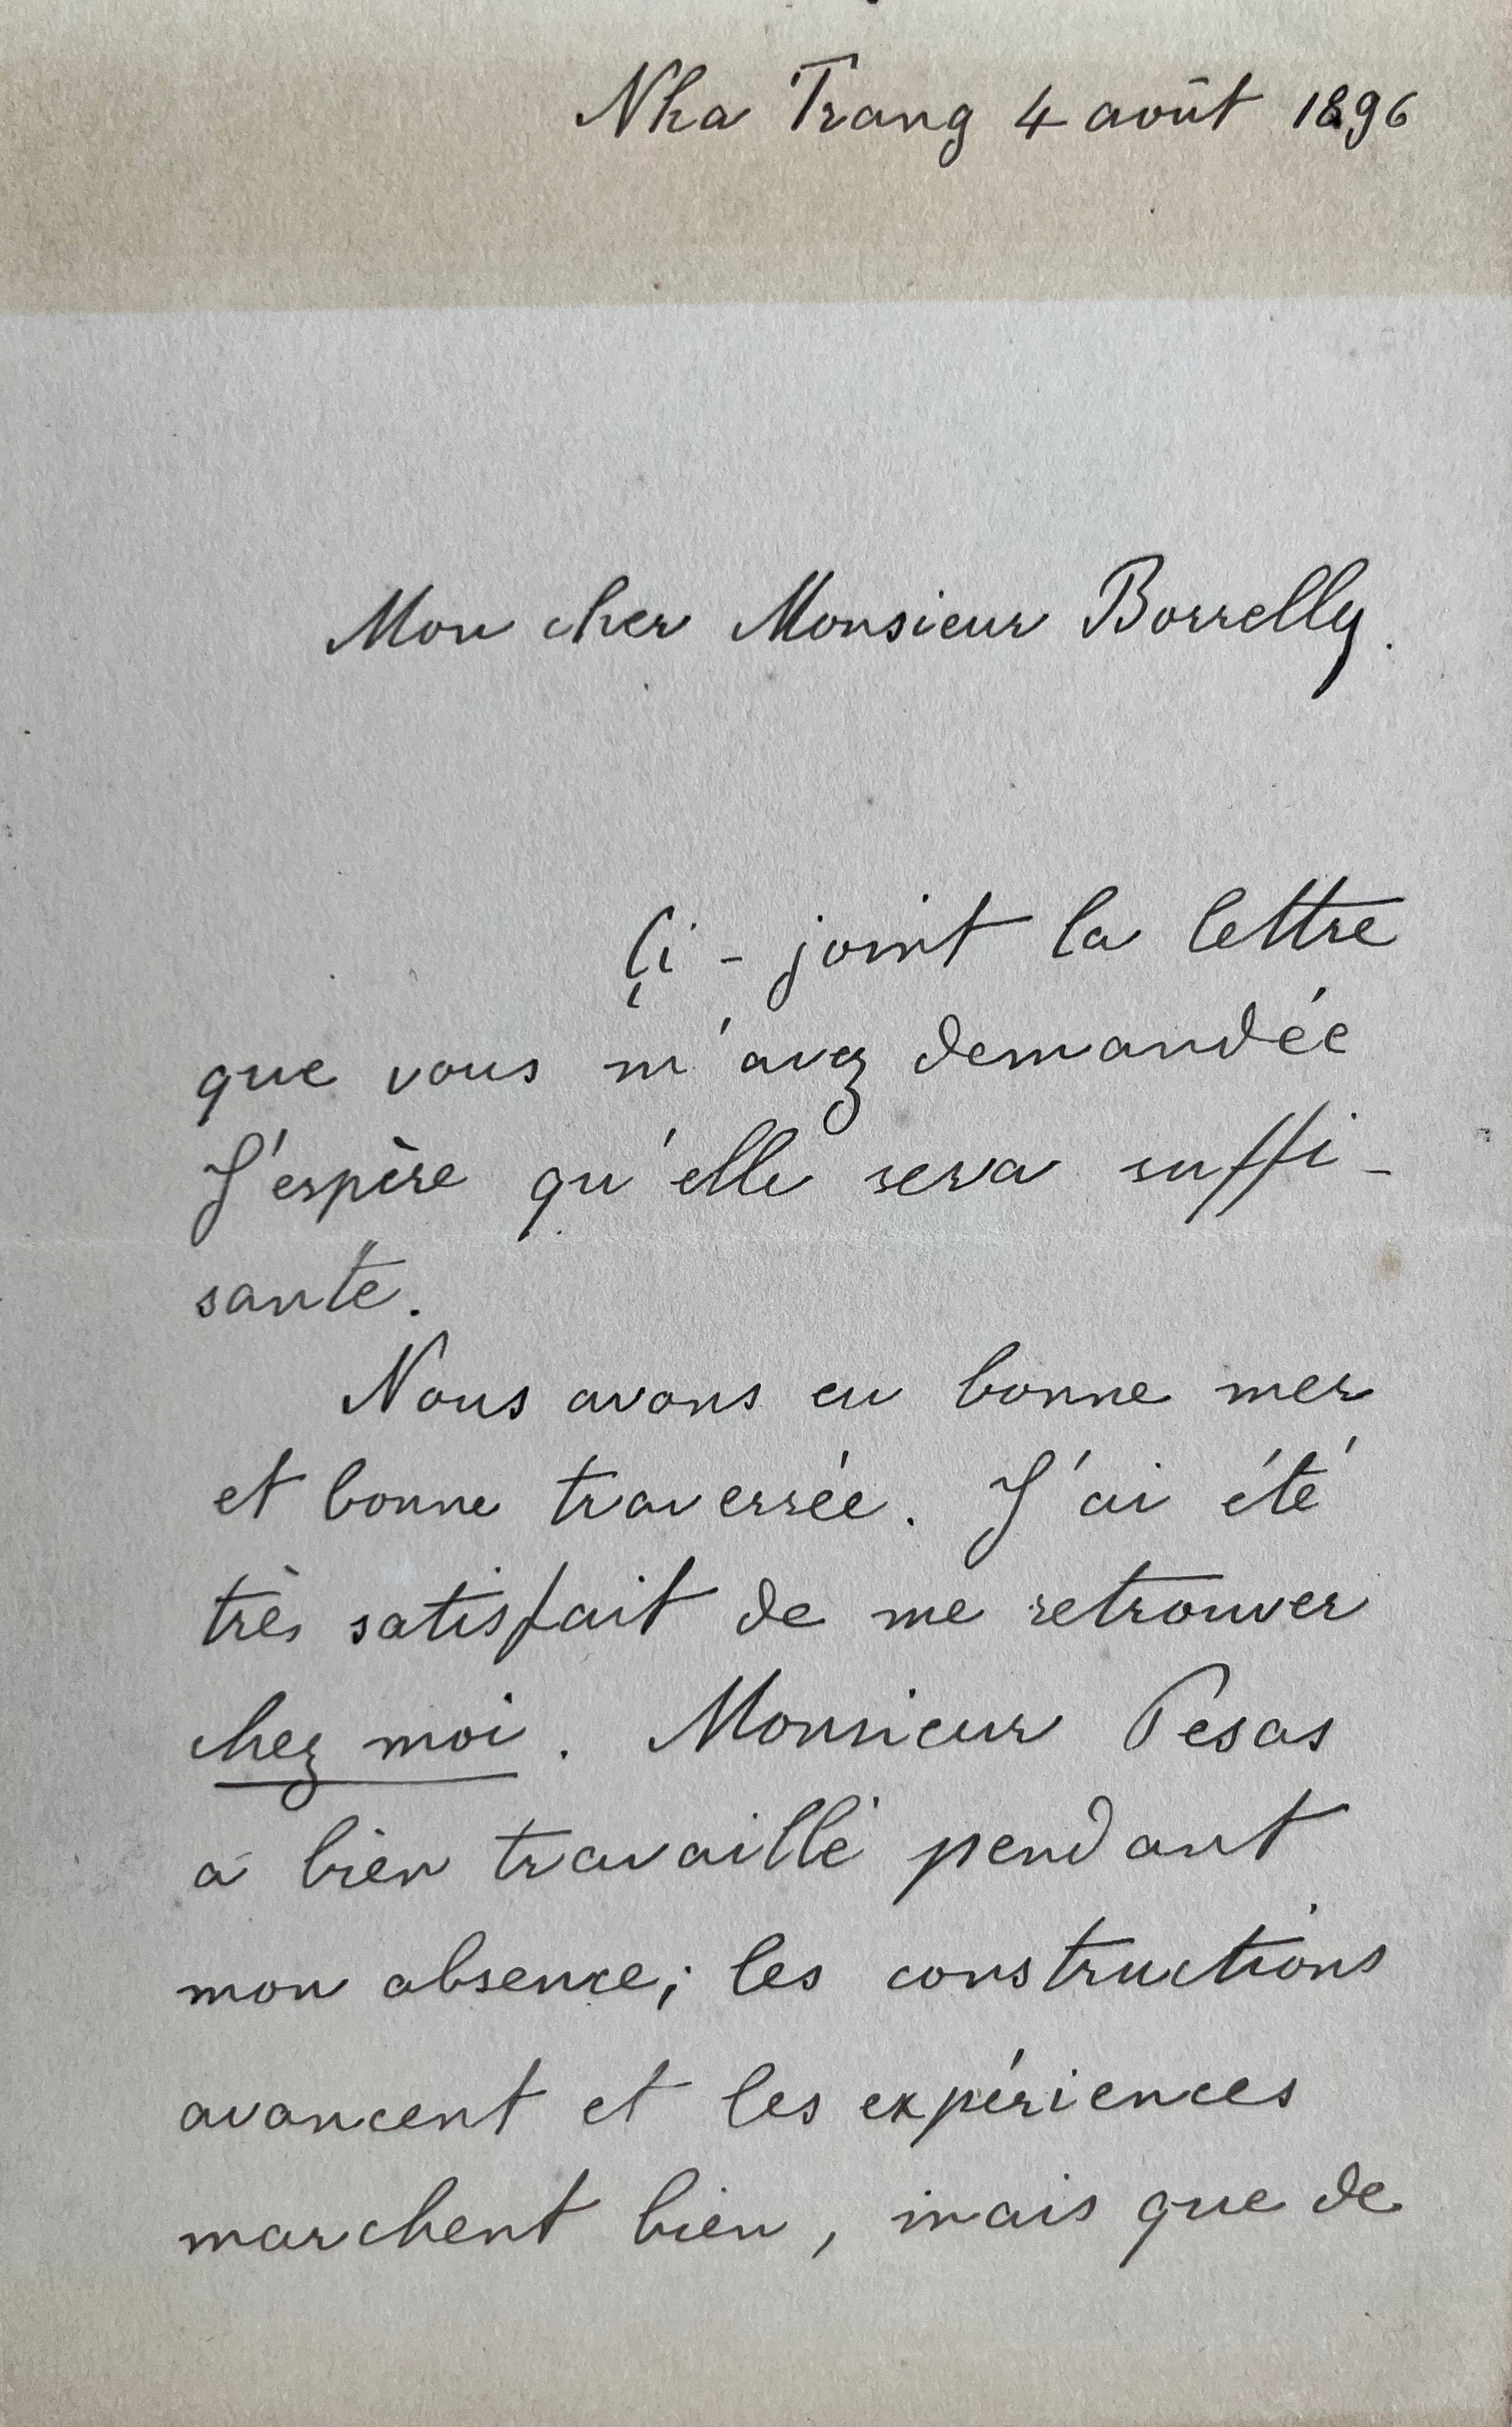 Nha Trang 4 août 1896
Mon cher Monsieur Borrelly.
Çi-joint la lettre
que vous m'avez demandée
J'espère qu'elle sera suffi-
sante.
Nous avons eu bonne mer
et bonne traversée. J'ai été
très satisfait de me retrouver
chez moi. Monsieur Pesas
a bien travaillé pendant
mon absence; les constructions
avancent et les expériences
marchent bien, mais que de